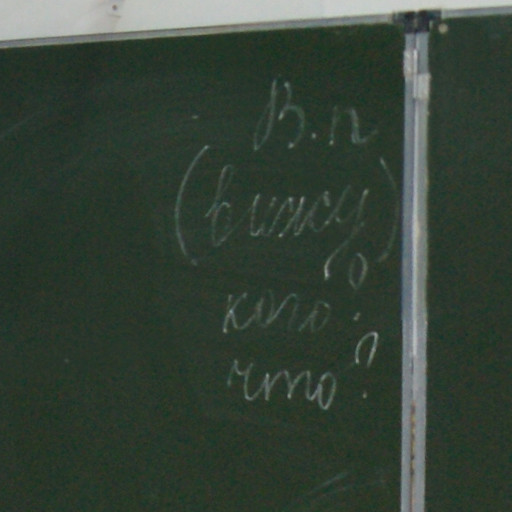 В.п
(вижу)
кого?
что?